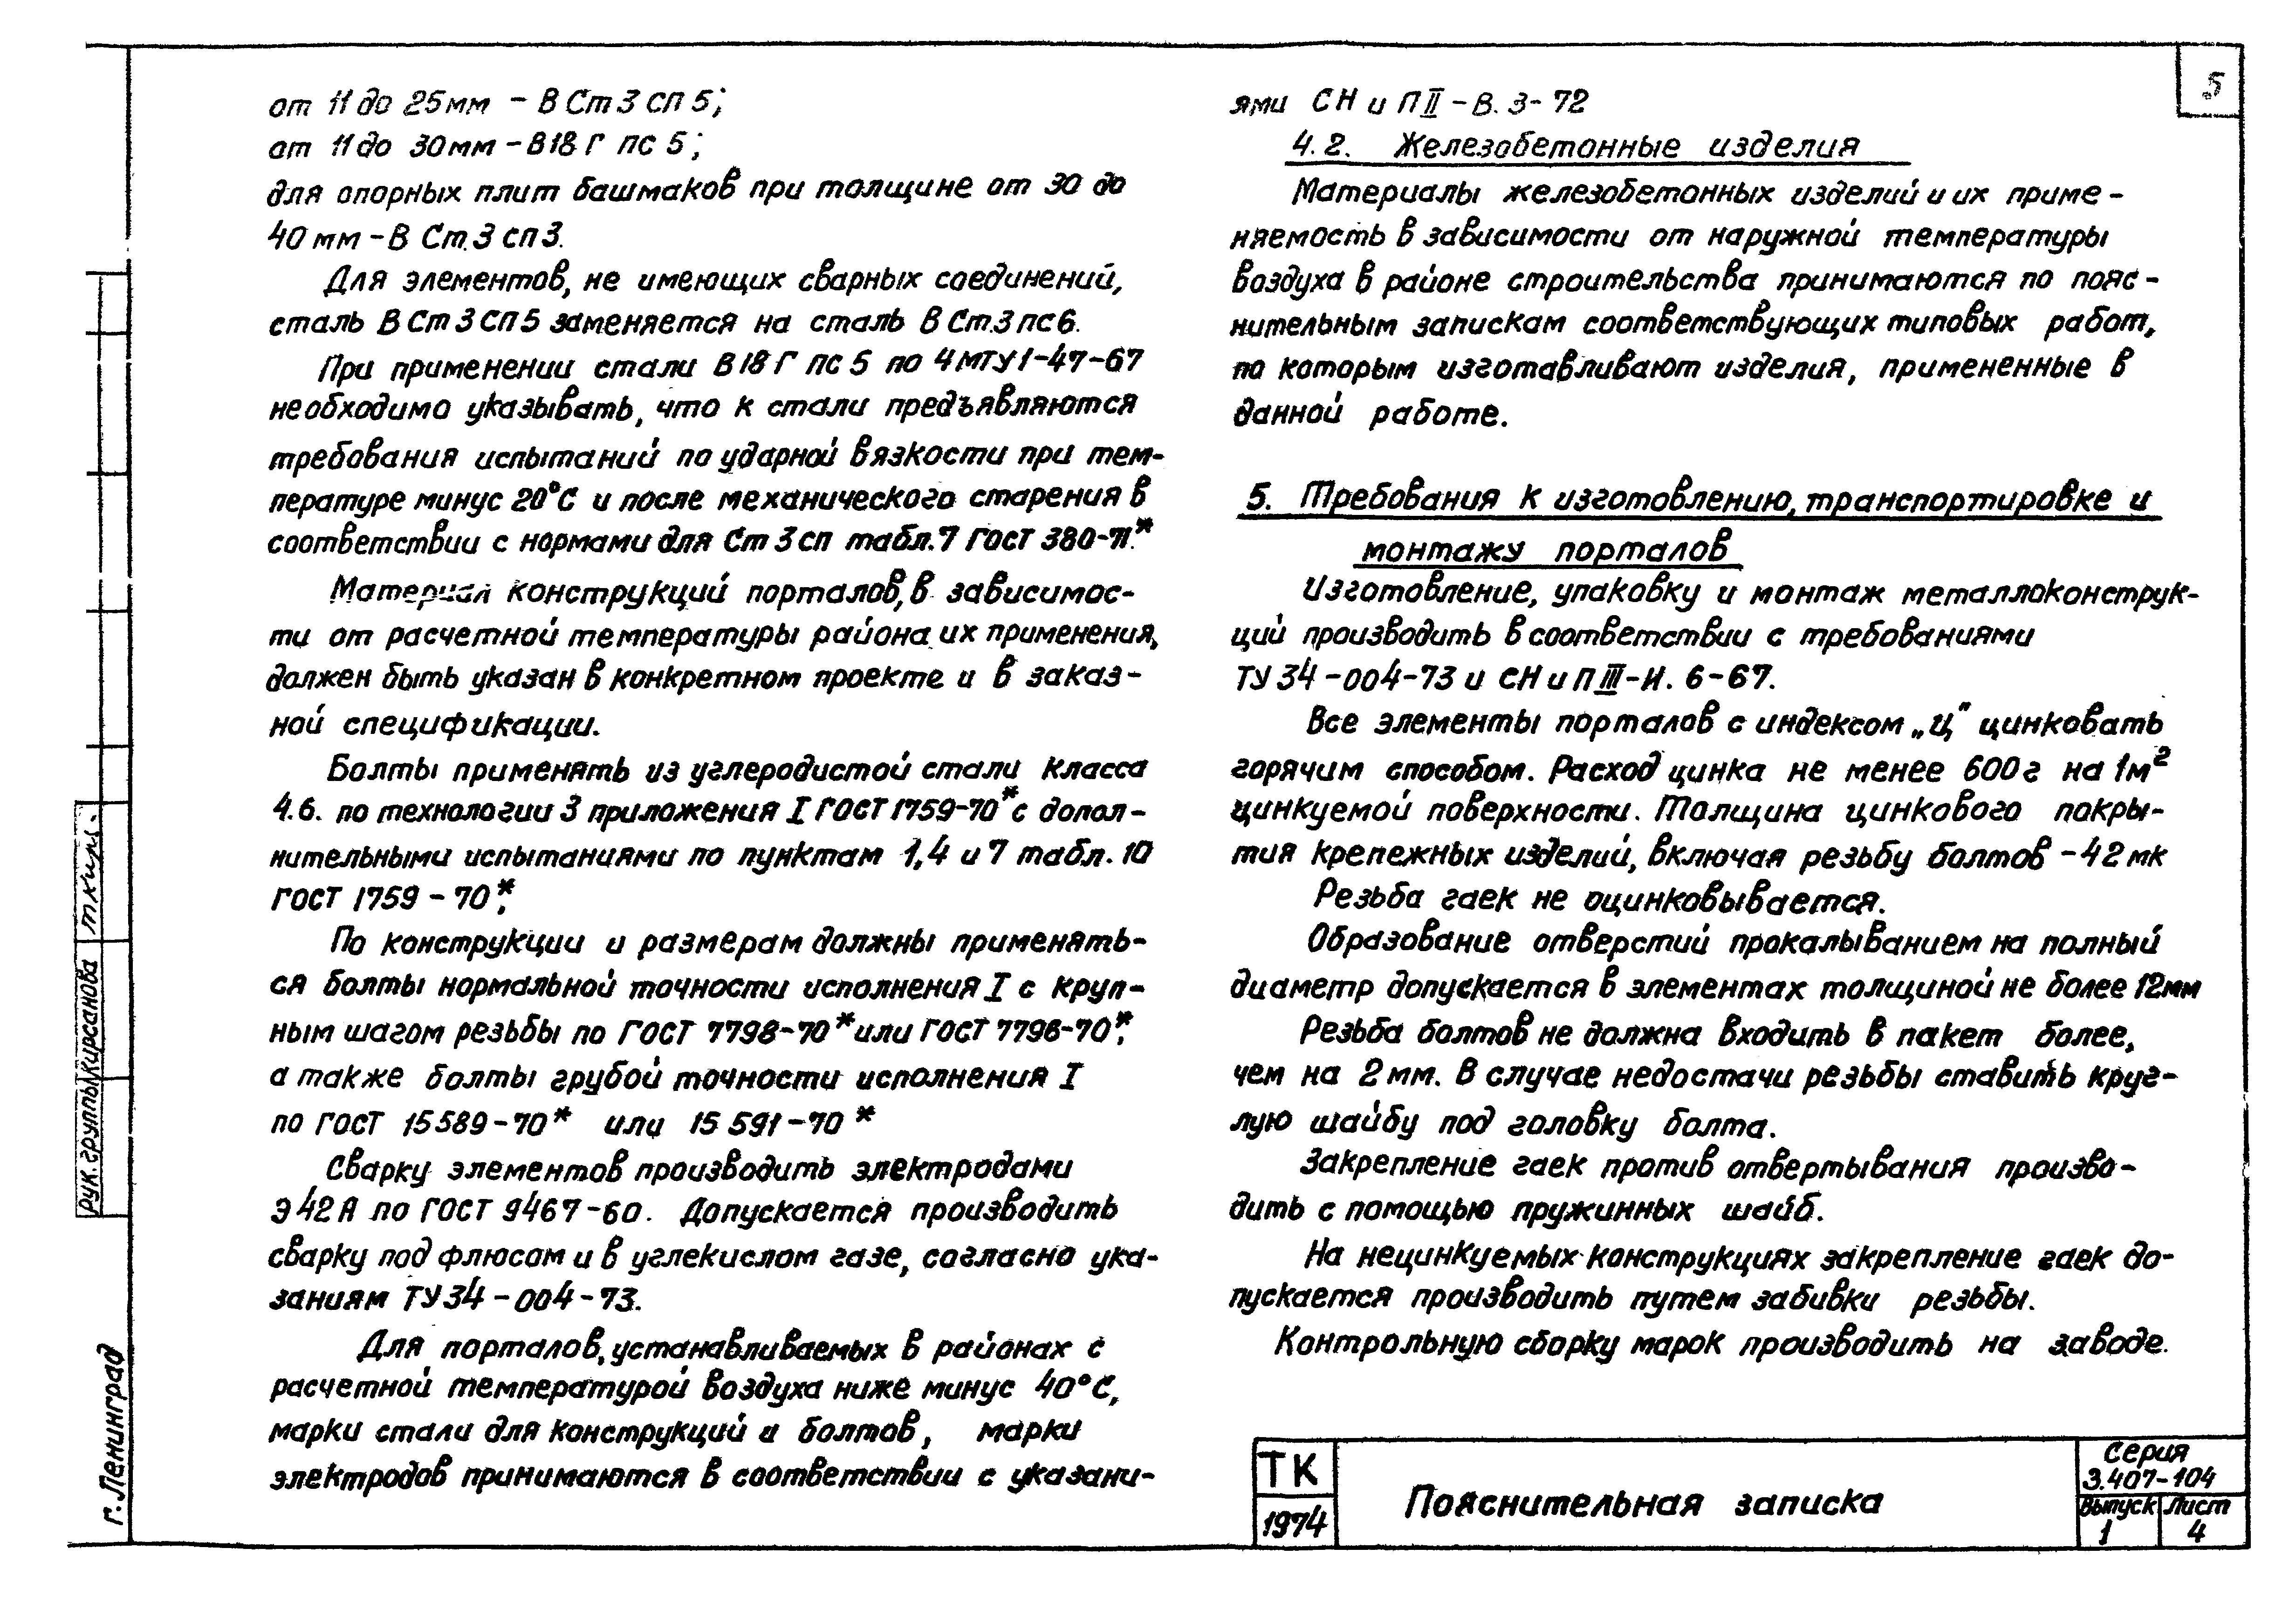 от 11 до 25мм – В Ст 3 сп 5;
от 11 до 30мм – В18 Г пс 5;
для опорных плит башмаков при толщине от 30 до
40 мм – В Ст. 3 сп 3.
Для элементов, не имеющих сварных соединений,
сталь В Ст 3 СП 5 заменяется на сталь В Ст.3 пс 6.
При применении стали В 18 Г пс 5 по 4 МТУ 1-47-67
необходимо указывать, что к стали предъявляются
требования испытаний по ударной вязкости при тем-
пературе минус 20°С и после механического старения в
соответствии с нормами для Ст 3 сп табл.7 ГОСТ 380-71.*
Материал конструкций порталов, в зависимос-
ти от расчетной температуры района их применения,
должен быть указан в конкретном проекте и в заказ-
ной спецификации.
Болты применять из углеродистой стали класса
4.6. по технологии 3 приложения I ГОСТ 1759-70* с допол-
нительными испытаниями по пунктам 1,4 и 7 табл. 10
ГОСТ 1759 – 70*.
По конструкции и размерам должны применять-
ся болты нормальной точности исполнения I с круп-
ным шагом резьбы по ГОСТ 7798-70* или ГОСТ 7796-70*,
а также болты грубой точности исполнения I
по ГОСТ 15589-70* или 15591-70*
Сварку элементов производить электродами
Э 42 А по ГОСТ 9467-60. Допускается производить
сварку под флюсом и в углекислом газе, согласно ука-
заниям ТУ 34-004-73.
Для порталов, устанавливаемых в районах с
расчетной температурой воздуха ниже минус 40°С,
марки стали для конструкций и болтов, марки
электродов принимаются в соответствии с указани-
ями СН и П II – В. 3-72
4.2. Железобетонные изделия
Материалы железобетонных изделий и их приме-
няемость в зависимости от наружной температуры
воздуха в районе строительства принимаются по пояс-
нительным запискам соответствующих типовых работ,
по которым изготавливают изделия, примененные в
данной работе.
5. Требования к изготовлению, транспортировке и
монтажу порталов
Изготовление, упаковку и монтаж металлоконструк-
ций производить в соответствии с требованиями
ТУ 34-004-73 и СН и П III-И. 6-67.
Все элементы порталов с индексом „Ц" цинковать
горячим способом. Расход цинка не менее 600г на 1м²
цинкуемой поверхности. Толщина цинкового покры-
тия крепежных изделий, включая резьбу болтов – 42 мк
Резьба гаек не оцинковывается.
Образование отверстий прокалыванием на полный
диаметр допускается в элементах толщиной не более 12мм
Резьба болтов не должна входить в пакет более,
чем на 2 мм. В случае недостачи резьбы ставить круг-
лую шайбу под головку болта.
Закрепление гаек против отвертывания произво-
дить с помощью пружинных шайб.
На нецинкуемых конструкциях закрепление гаек до-
пускается производить путем забивки резьбы.
Контрольную сборку марок производить на заводе.
5
ТК
1974
Пояснительная записка
Серия
3.407-104
Выпуск
1
Лист
4
Рук. группы Кирсанова
г. Ленинград